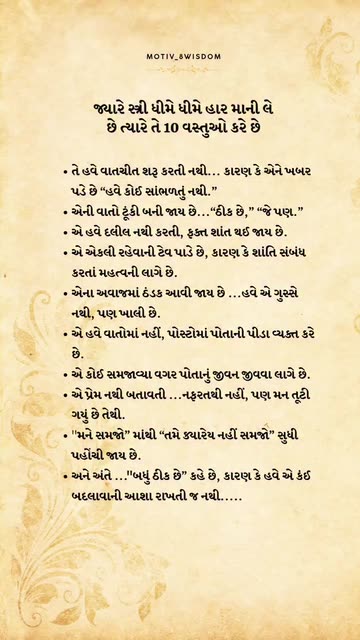 MOTIV_8WISDOM
જ્યારે સ્ત્રી ધીમે ધીમે હાર માની લે
છે ત્યારે તે 10 વસ્તુઓ કરે છે
• તે હવે વાતચીત શરૂ કરતી નથી... કારણ કે એને ખબર
પડે છે “હવે કોઈ સાંભળતું નથી.”
• એની વાતો ટૂંકી બની જાય છે...“ઠીક છે,” “જે પણ.”
• એ હવે દલીલ નથી કરતી, ફક્ત શાંત થઈ જાય છે.
• એ એકલી રહેવાની ટેવ પાડે છે, કારણ કે શાંતિ સંબંધ
કરતાં મહત્વની લાગે છે.
• એના અવાજમાં ઠંડક આવી જાય છે ...હવે એ ગુસ્સે
નથી, પણ ખાલી છે.
• એ હવે વાતોમાં નહીં, પોસ્ટોમાં પોતાની પીડા વ્યક્ત કરે
છે.
• એ કોઈ સમજાવ્યા વગર પોતાનું જીવન જીવવા લાગે છે.
• એ પ્રેમ નથી બતાવતી ...નફરતથી નહીં, પણ મન તૂટી
ગયું છે તેથી.
• "મને સમજો” માંથી “તમે ક્યારેય નહીં સમજો” સુધી
પહોંચી જાય છે.
• અને અંતે ..."બધું ઠીક છે” કહે છે, કારણ કે હવે એ કંઈ
બદલાવાની આશા રાખતી જ નથી.....